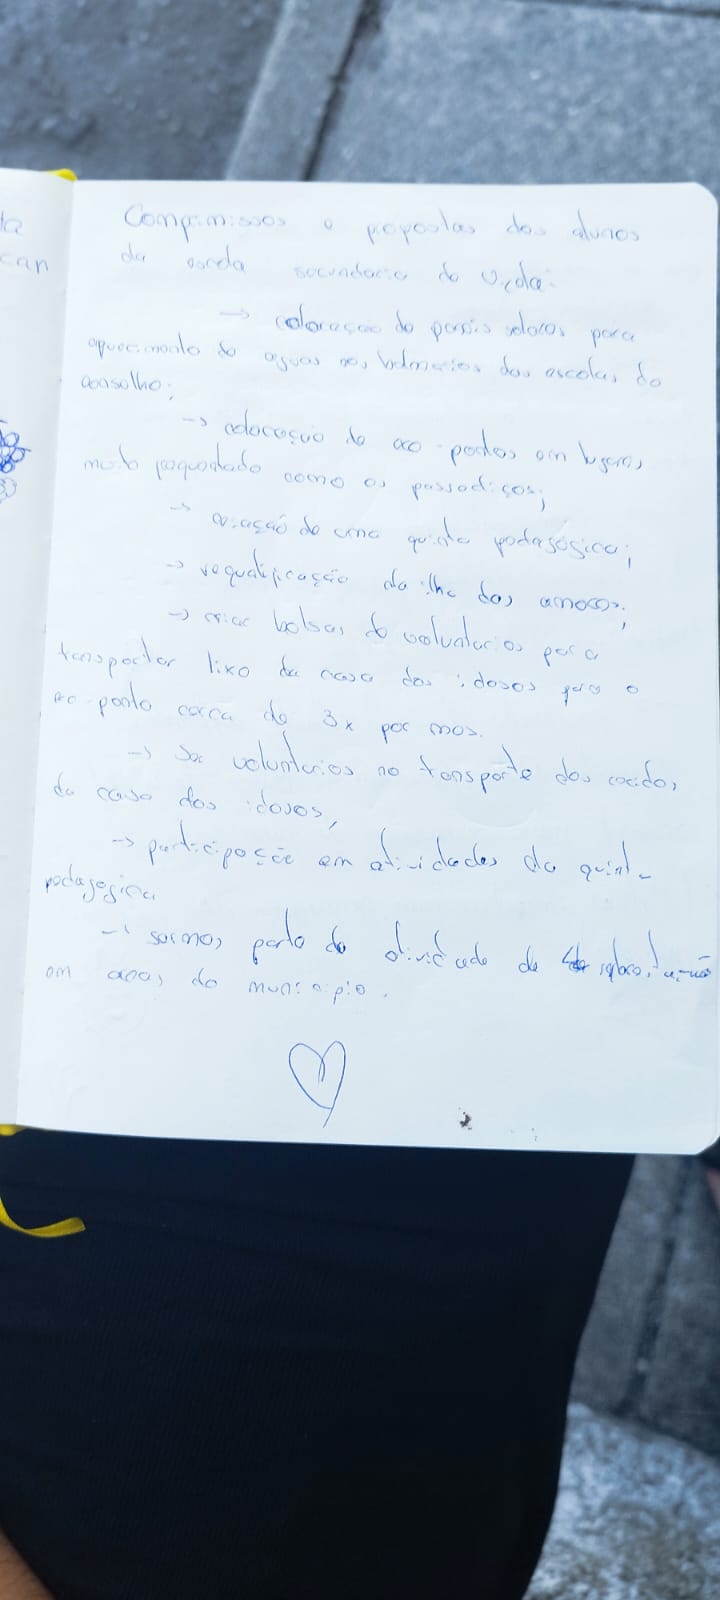 ta
can
Compromissos e propostas dos alunos
da escola secundaria de Vizela:
→ colocação de paneis solares para
aquecimento de aguas nos balnearios das escolas do
conselho;
→ colocação de eco-pontos em lugares
muito frequentado como os passadiços;
→ criação de uma quinta pedagógica;
→ requalificação da ilha dos amores;
→ criar bolsas de voluntarios para
transportar lixo da casa dos idosos para o
eco-ponto cerca de 3x por mes.
→ Ser voluntarios no transporte dos
da casa dos idosos,
→ participação em atividades da quinta
pedagogica
→ sermos parte da atividade de
em areas do municipio.